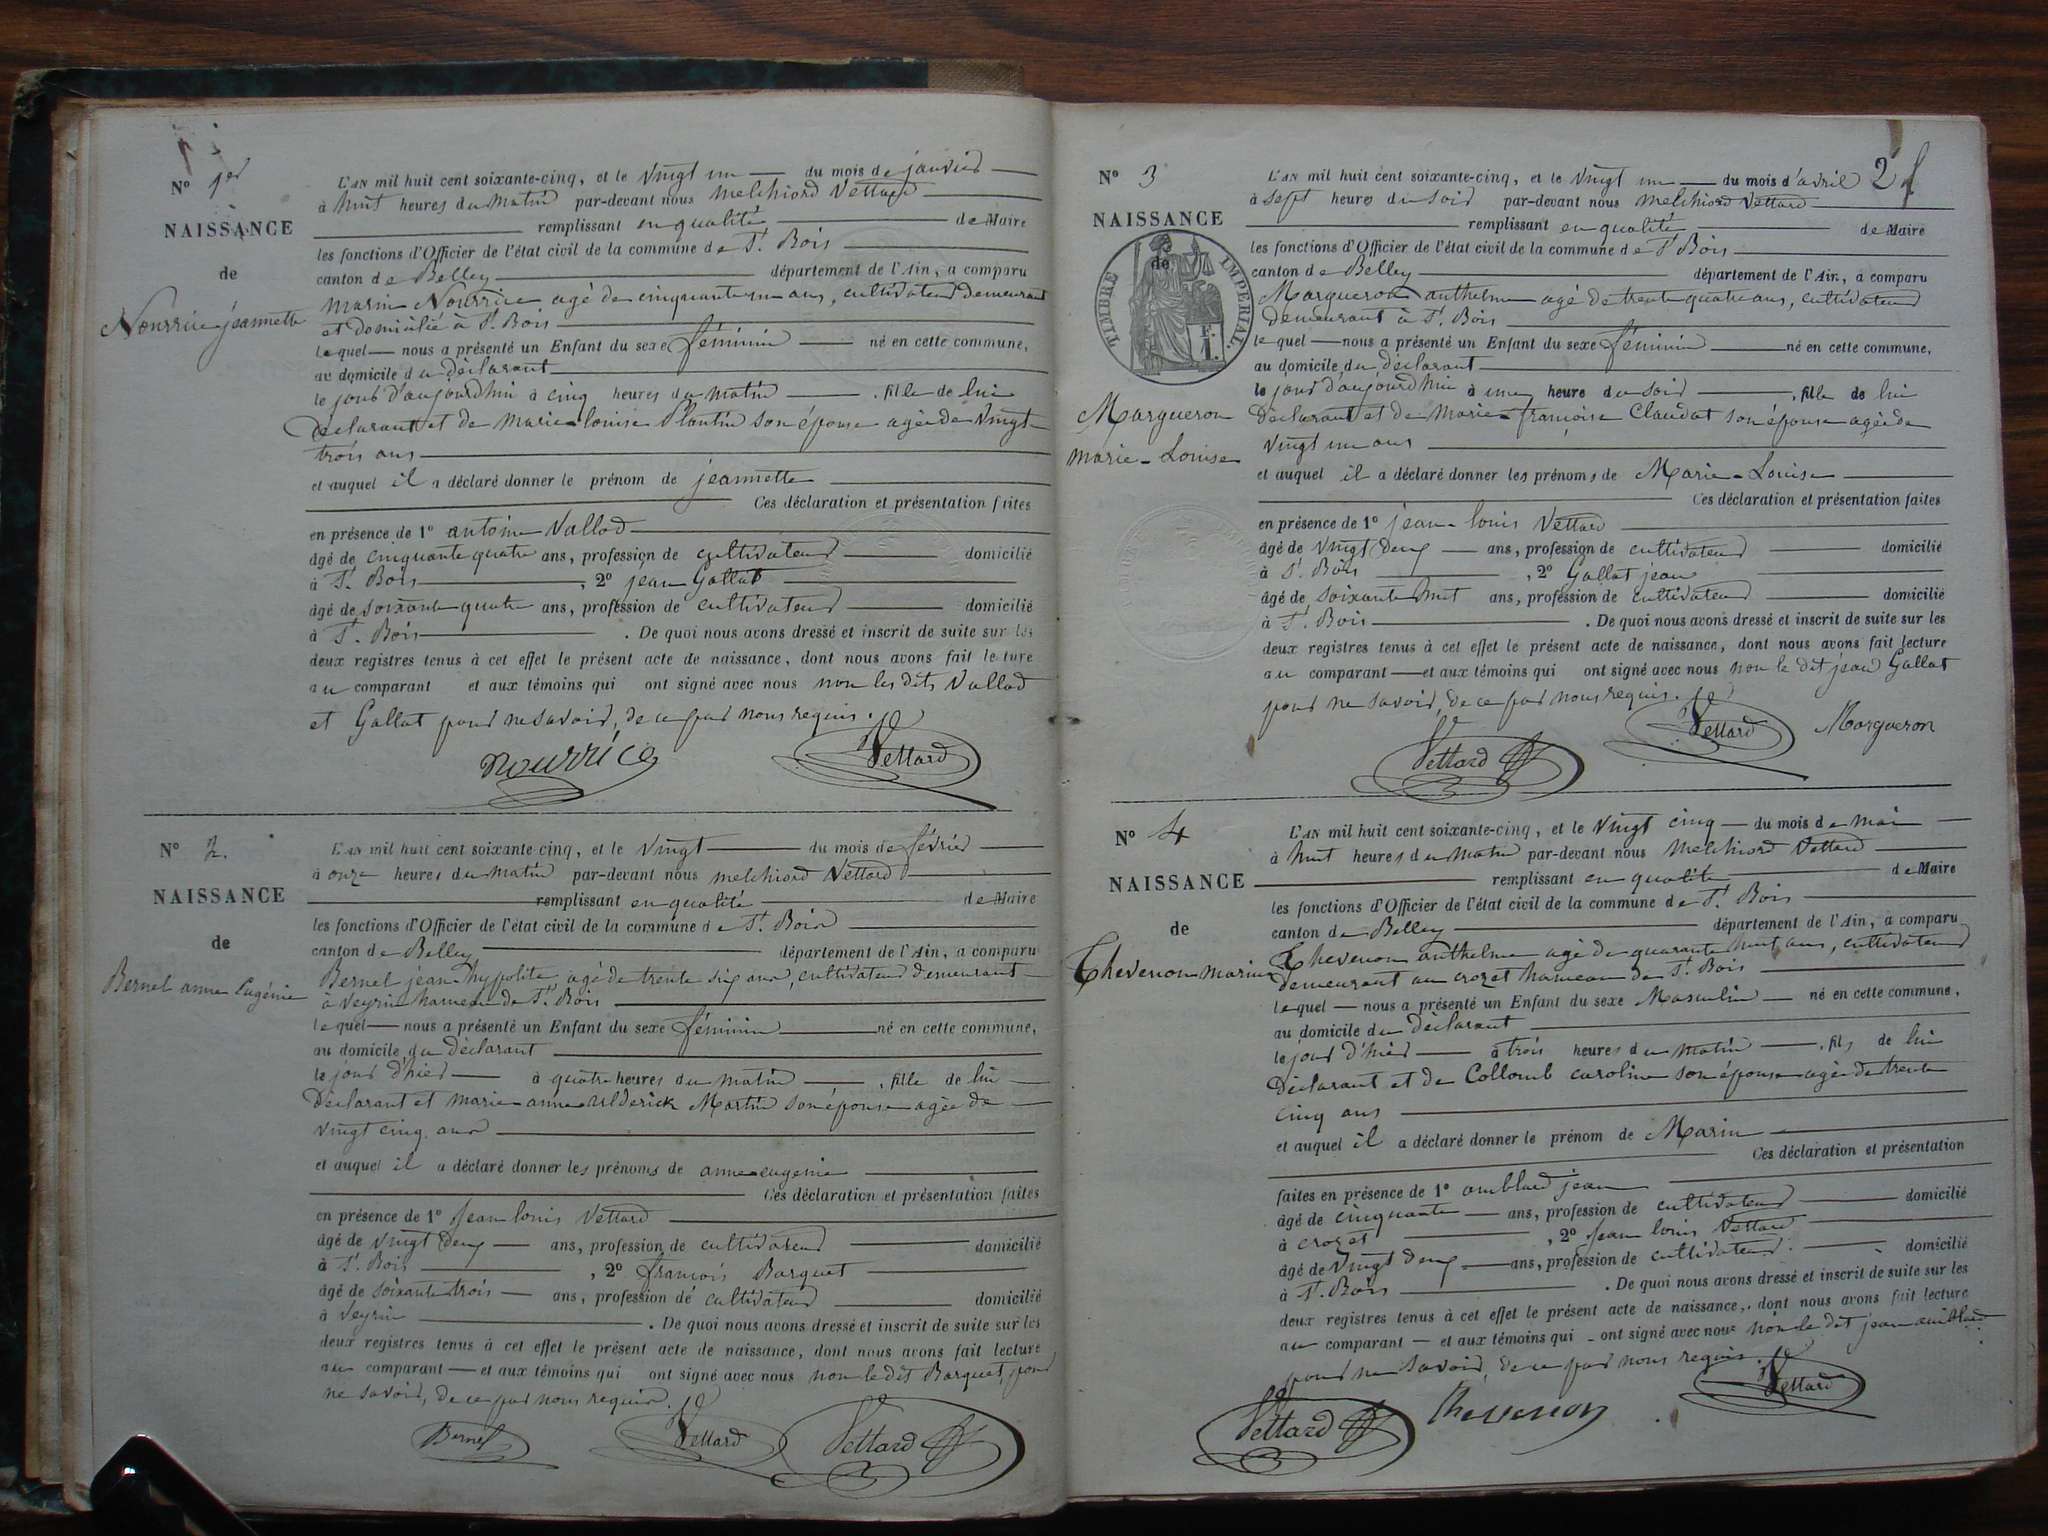 N° 1er
NAISSANCE
de
Nourrice jeannette
L'AN mil huit cent soixante-cinq, et le vingt un du mois de janvier
à huit heures du matin par-devant nous melchiord Vettard
remplissant en qualité de Maire
les fonctions d'Officier de l'état civil de la commune de St. Bois
canton de Belley département de l'Ain, a comparu
marin Nourrice agé de cinquante un ans, cultivateur demeurant
et domicilié à St. Bois
lequel nous a présenté un Enfant du sexe féminin né en cette commune,
au domicile du déclarant
le jour d'aujourd'hui à cinq heures du matin , fille de lui
déclarant et de marie-louise Plantin son épouse agée de vingt
trois ans
et auquel il a déclaré donner le prénom de jeannette
Ces déclaration et présentation faites
en présence de 1° antoine Vallod
âgé de cinquante quatre ans, profession de cultivateur domicilié
à St. Bois , 2° jean Gallat
âgé de soixante quatre ans, profession de cultivateur domicilié
à St. Bois . De quoi nous avons dressé et inscrit de suite sur les
deux registres tenus à cet effet le présent acte de naissance, dont nous avons fait lecture
au comparant et aux témoins qui ont signé avec nous non les dits Vallod
et Gallat pour ne savoir, de ce par nous requis.
nourrice Vettard
N° 2.
NAISSANCE
de
Bernel anne Eugénie
L'AN mil huit cent soixante-cinq, et le vingt du mois de février
à onze heures du matin par-devant nous melchiord Vettard
remplissant en qualité de Maire
les fonctions d'Officier de l'état civil de la commune de St. Bois
canton de Belley département de l'Ain, a comparu
Bernel jean-hypolite agé de trente six ans, cultivateur demeurant
à Veyrin hameau de St. Bois
lequel nous a présenté un Enfant du sexe féminin né en cette commune,
au domicile du déclarant
le jour d'hier à quatre heures du matin , fille de lui
déclarant et marie-anne-ulderick Martin son épouse agée de
vingt cinq ans
et auquel il a déclaré donner les prénoms de anne-eugénie
Ces déclaration et présentation faites
en présence de 1° Jean louis Vettard
âgé de vingt deux ans, profession de cultivateur domicilié
à St. Bois , 2° françois Barquet
âgé de soixante trois ans, profession de cultivateur domicilié
à Veyrin . De quoi nous avons dressé et inscrit de suite sur les
deux registres tenus à cet effet le présent acte de naissance, dont nous avons fait lecture
au comparant et aux témoins qui ont signé avec nous non le dit Barquet, pour
ne savoir, de ce par nous requis.
Bernel Vettard Vettard
2
N° 3
NAISSANCE
de
TIMBRE IMPERIAL.
1 F.
Margueron
marie-Louise
L'AN mil huit cent soixante-cinq, et le vingt un du mois d'avril
à sept heures du soir par-devant nous melchiord Vettard
remplissant en qualité de Maire
les fonctions d'Officier de l'état civil de la commune de St Bois
canton de Belley département de l'Ain, a comparu
Margueron anthelme agé de trente quatre ans, cultivateur
demeurant à St. Bois
lequel nous a présenté un Enfant du sexe féminin né en cette commune,
au domicile du déclarant
le jour d'aujourd'hui à une heure du soir , fille de lui
déclarant et de marie-françoise Claudat son épouse agée de
vingt un ans
et auquel il a déclaré donner les prénoms de Marie-Louise
Ces déclaration et présentation faites
en présence de 1° jean-louis Vettard
âgé de vingt deux ans, profession de cultivateur domicilié
à St. Bois , 2° Gallat jean
âgé de soixante huit ans, profession de cultivateur domicilié
à St. Bois . De quoi nous avons dressé et inscrit de suite sur les
deux registres tenus à cet effet le présent acte de naissance, dont nous avons fait lecture
au comparant et aux témoins qui ont signé avec nous non le dit jean Gallat
pour ne savoir, de ce par nous requis.
Vettard Vettard Margueron
N° 4
NAISSANCE
de
Thevenon marin
L'AN mil huit cent soixante-cinq, et le vingt cinq du mois de mai
à huit heures du matin par-devant nous melchiord Vettard
remplissant en qualité de Maire
les fonctions d'Officier de l'état civil de la commune de St. Bois
canton de Belley département de l'Ain, a comparu
Thevenon anthelme agé de quarante huit ans, cultivateur
demeurant au crozet hameau de St. Bois
lequel nous a présenté un Enfant du sexe Masculin né en cette commune,
au domicile du déclarant
le jour d'hier à trois heures du matin , fils de lui
déclarant et de Collomb caroline son épouse agée de trente
cinq ans
et auquel il a déclaré donner le prénom de Marin
Ces déclaration et présentation
faites en présence de 1° amblard jean
âgé de cinquante ans, profession de cultivateur domicilié
à crozet , 2° Jean louis Vettard
âgé de vingt deux ans, profession de cultivateur domicilié
à St. Bois . De quoi nous avons dressé et inscrit de suite sur les
deux registres tenus à cet effet le présent acte de naissance, dont nous avons fait lecture
au comparant et aux témoins qui ont signé avec nous non le dit jean amblard
pour ne savoir, de ce par nous requis.
Vettard thevenon Vettard